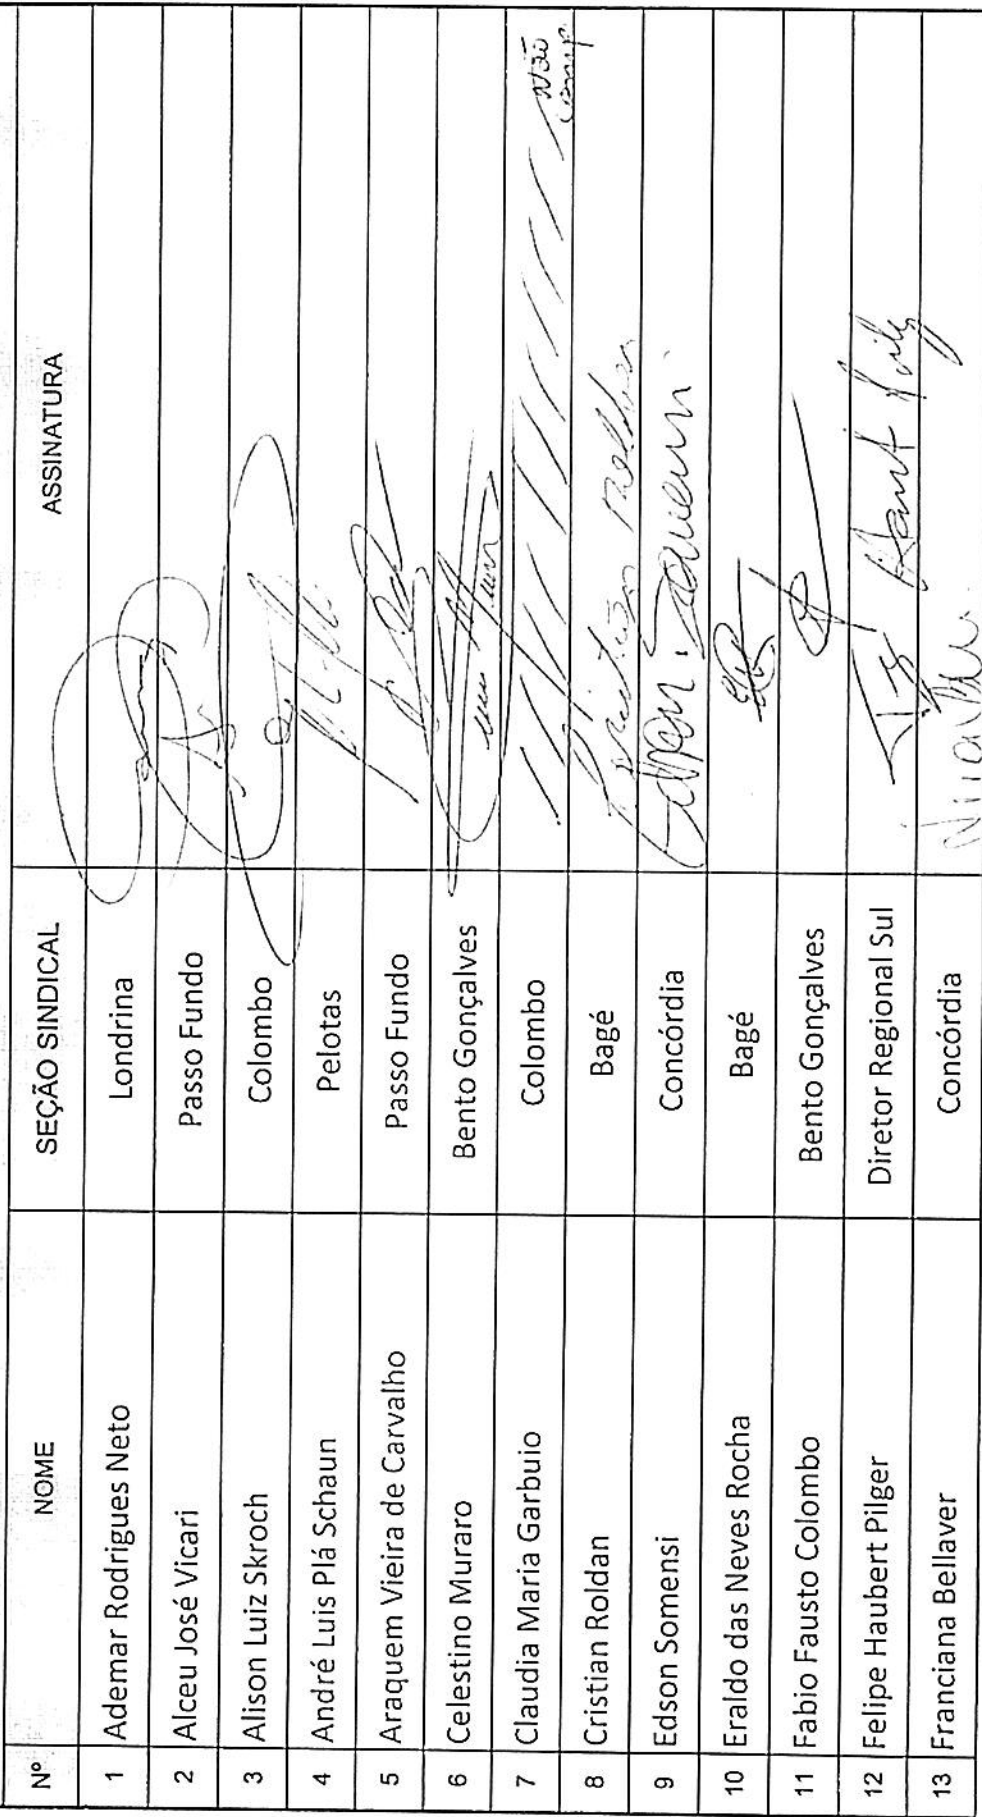 Nº NOME SEÇÃO SINDICAL ASSINATURA
1 Ademar Rodrigues Neto Londrina
2 Alceu José Vicari Passo Fundo
3 Alison Luiz Skroch Colombo
4 André Luis Plá Schaun Pelotas
5 Araquem Vieira de Carvalho Passo Fundo
6 Celestino Muraro Bento Gonçalves
7 Claudia Maria Garbuio Colombo Não comp
8 Cristian Roldan Bagé Cristian Roldan
9 Edson Somensi Concórdia Edson Somensi
10 Eraldo das Neves Rocha Bagé
11 Fabio Fausto Colombo Bento Gonçalves
12 Felipe Haubert Pilger Diretor Regional Sul
13 Franciana Bellaver Concórdia